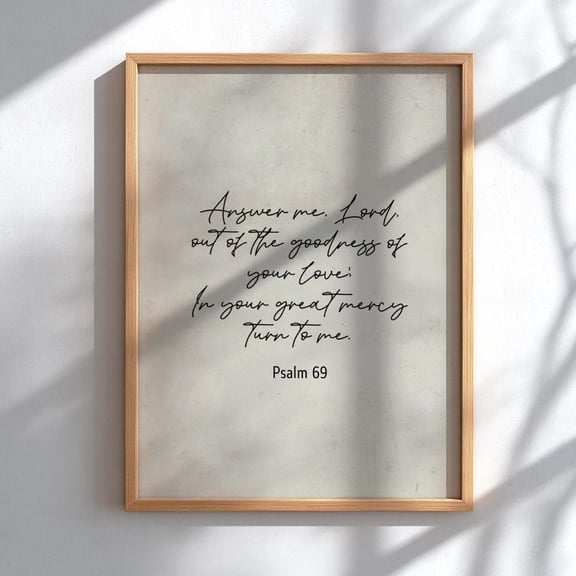 Answer me, Lord,
out of the goodness of
your love;
In your great mercy
turn to me.
Psalm 69